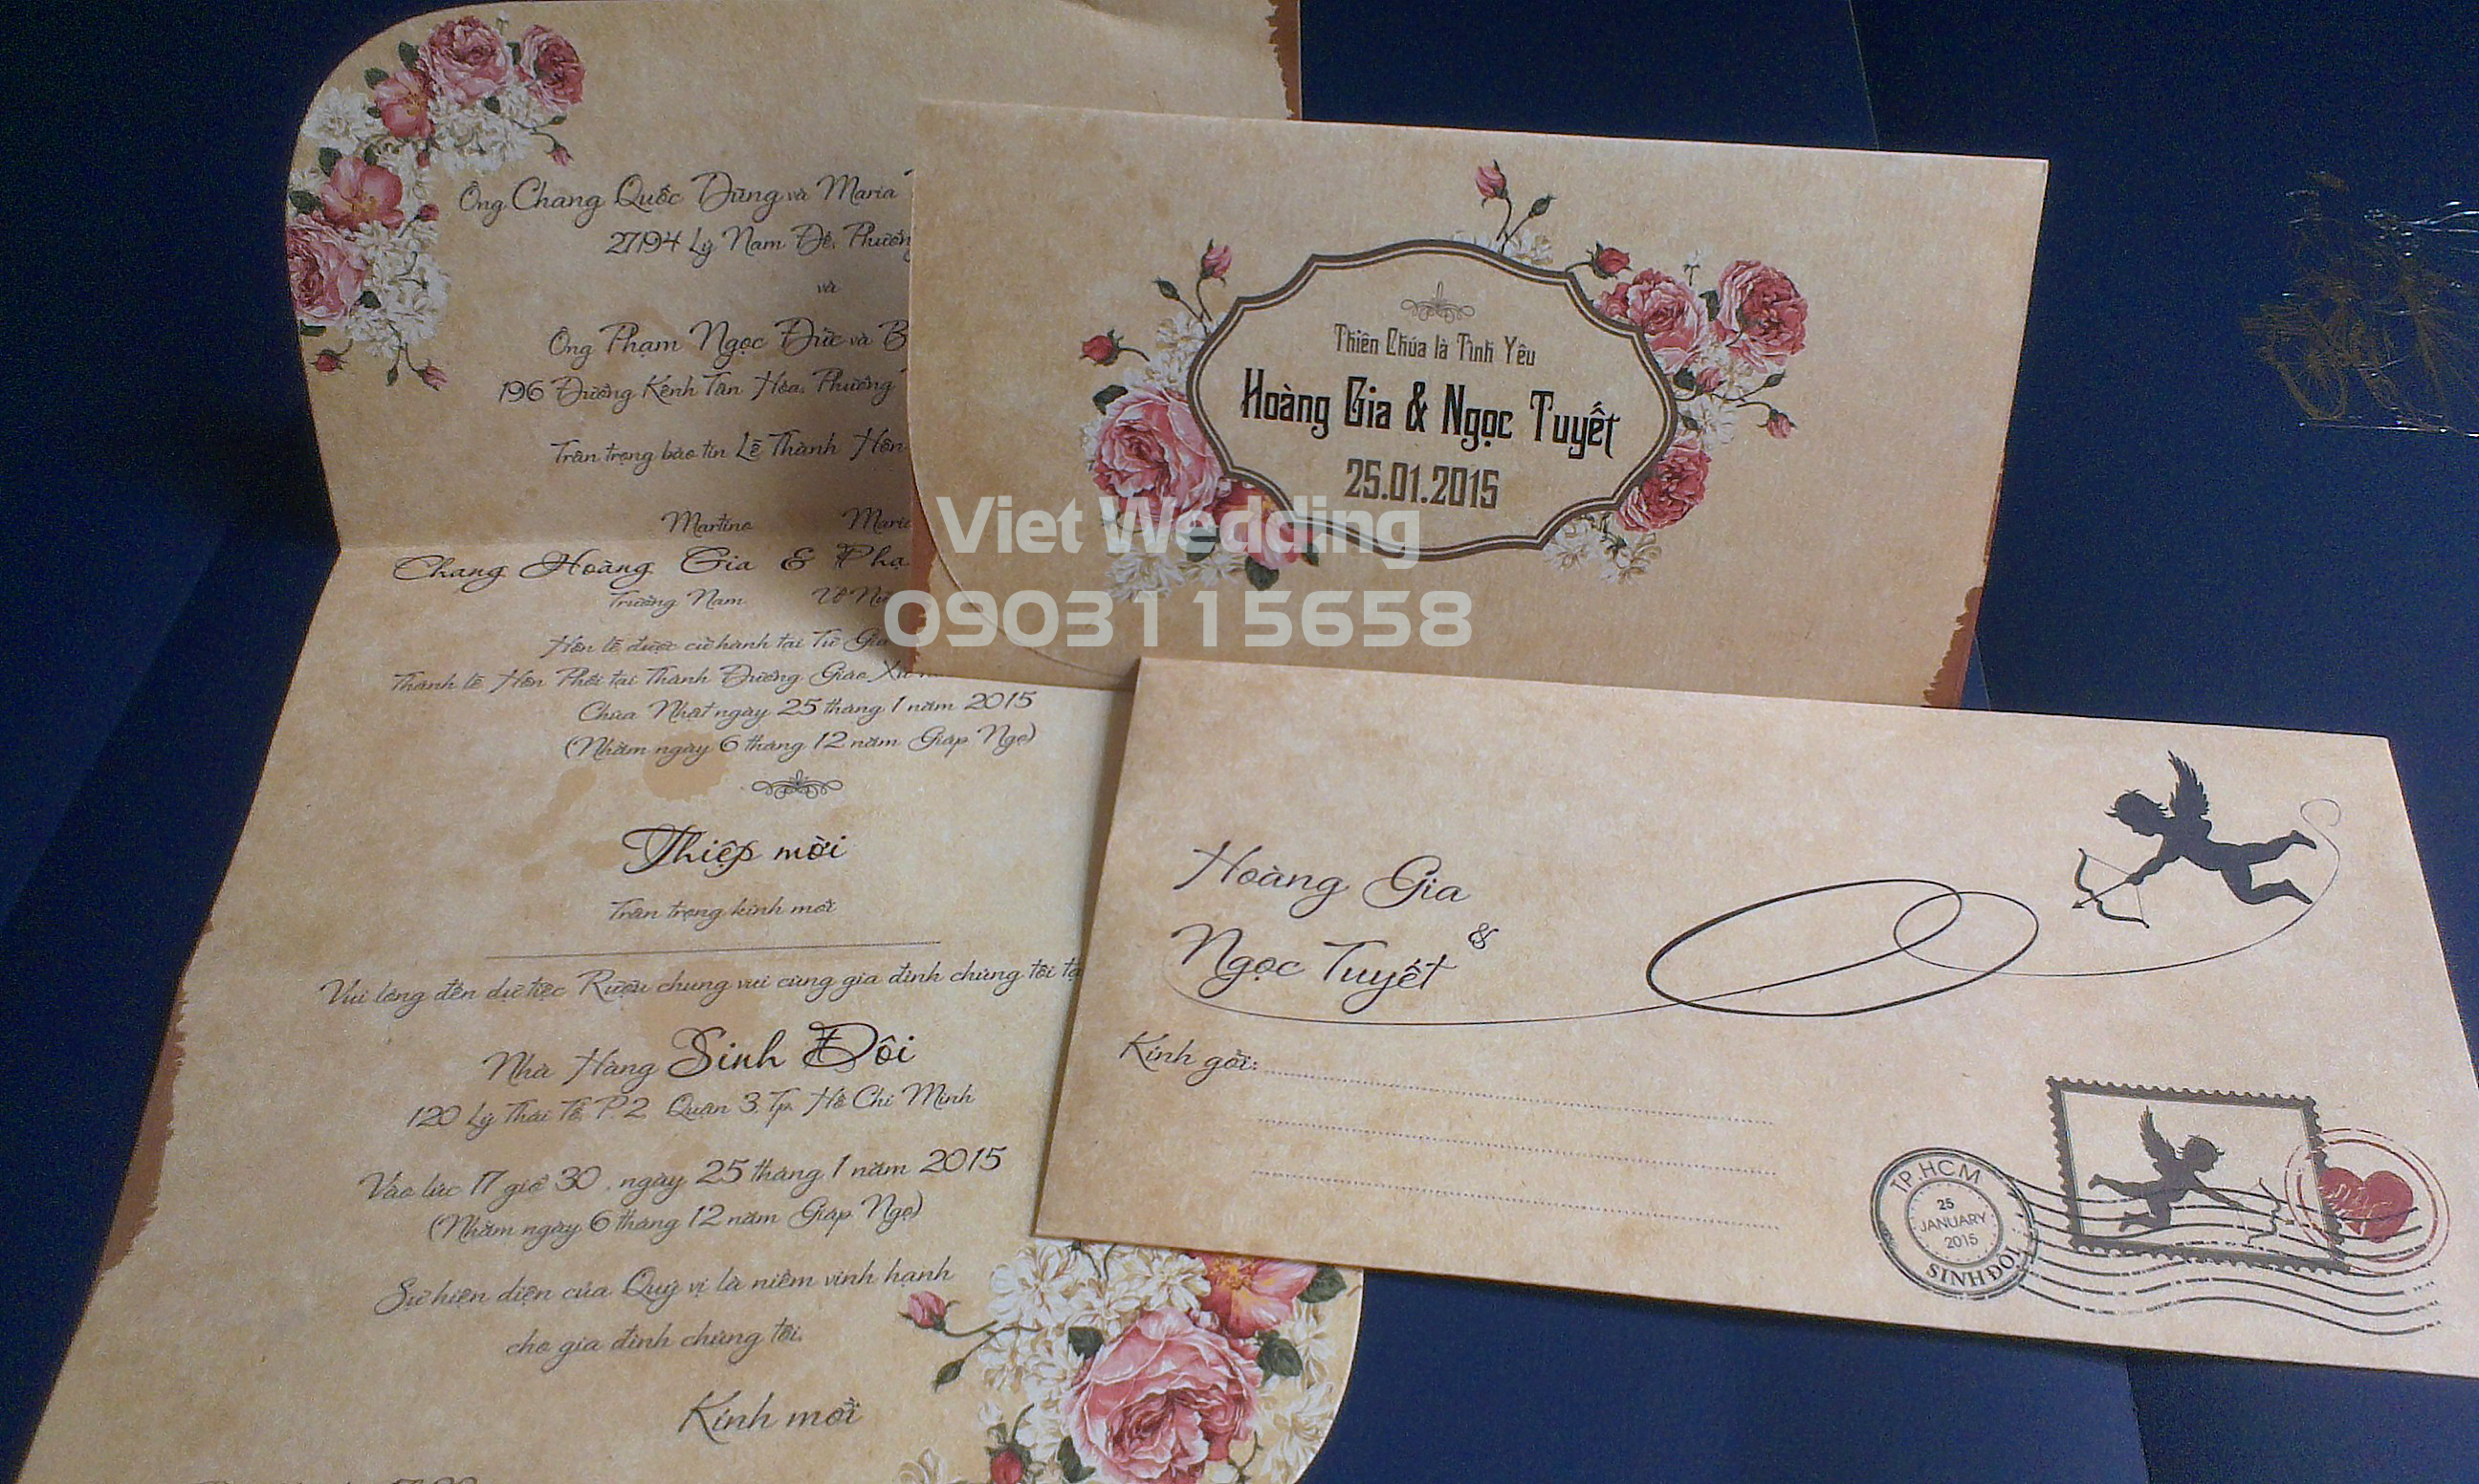 Ông Chang Quốc Dũng và Maria
27/94 Lý Nam Đế, Phường
và
Ông Phạm Ngọc Đức và B
196 Đường Kênh Tân Hóa, Phường
Trân trọng báo tin Lễ Thành Hôn
Martino Maria
Chang Hoàng Gia & Phạ
Trưởng Nam Út Nữ
Hôn lễ được cử hành tại Tư Gia
Thánh lễ Hôn Phối tại Thánh Đường Giáo Xứ
Chúa Nhật ngày 25 tháng 1 năm 2015
(Nhằm ngày 6 tháng 12 năm Giáp Ngọ)
Thiệp mời
Trân trọng kính mời
Vui lòng đến dự tiệc Rượu chung vui cùng gia đình chúng tôi tạ
Nhà Hàng Sinh Đôi
120 Lý Thái Tổ, P.2, Quận 3, Tp. Hồ Chí Minh
Vào lúc 17 giờ 30, ngày 25 tháng 1 năm 2015
(Nhằm ngày 6 tháng 12 năm Giáp Ngọ)
Sự hiện diện của Quý vị là niềm vinh hạnh
cho gia đình chúng tôi.
Kính mời
Thiên Chúa là Tình Yêu
Hoàng Gia & Ngọc Tuyết
25.01.2015
Viet Wedding
0903115658
Hoàng Gia
&
Ngọc Tuyết
Kính gởi:
TP.HCM
25
JANUARY
2015
SINH ĐÔI